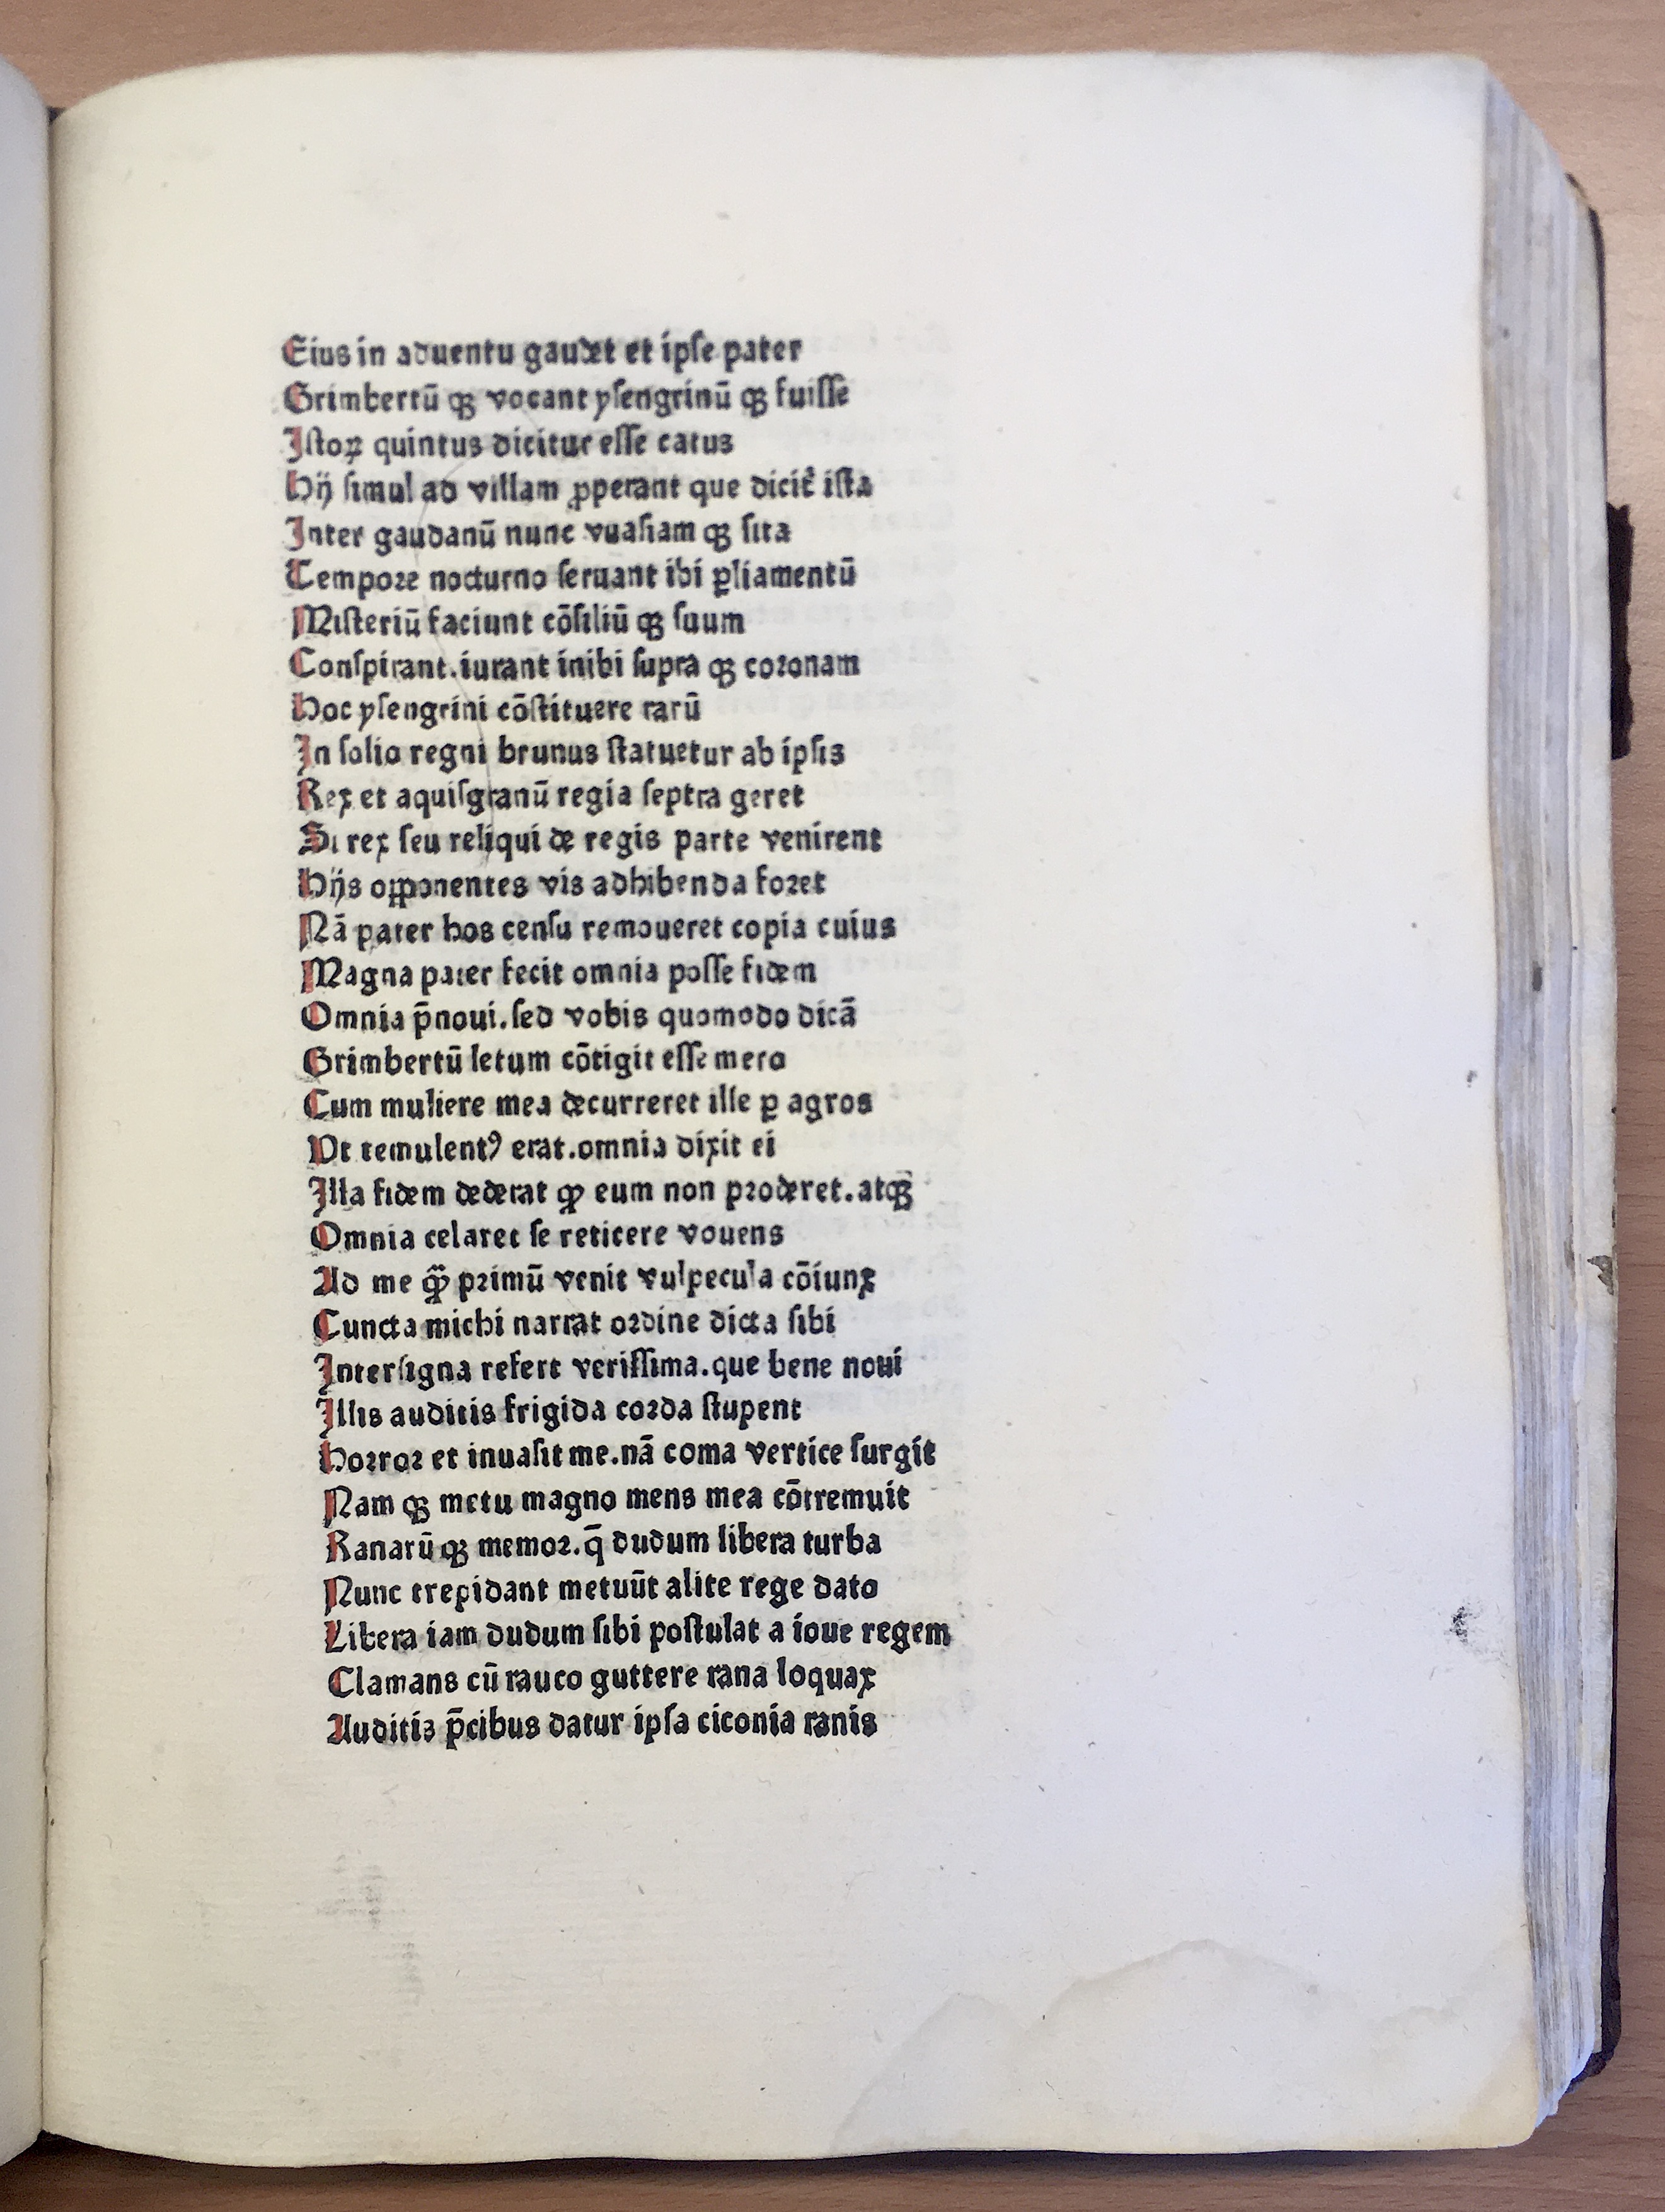 Eius in aduentu gaudet et ipſe pater
Grimbertū qꝫ vocant yſengrinū qꝫ fuiſſe
Iſtoꝝ quintus dicitur eſſe catus
Hij ſimul ad villam ꝓperant que dicit᷑ iſta
Inter gaudanū nunc vuaſiam qꝫ ſita
Tempoꝛe nocturno ſeruant ibi ꝑliamentū
Miſteriū faciunt cōſiliū qꝫ ſuum
Conſpirant.iurant inibi ſupra qꝫ coꝛonam
Hoc yſengrini cōſtituere rarū
In ſolio regni brunus ſtatuetur ab ipſis
Rex et aquiſgranū regia ſeptra geret
Si rex ſeu reliqui de regis parte venirent
Hijs opponentes vis adhibenda foꝛet
Nā pater hos cenſu remoueret copia cuius
Magna pater fecit omnia poſſe fidem
Omnia p̄noui.ſed vobis quomodo dicā
Grimbertū letum cōtigit eſſe mero
Cum muliere mea decurreret ille ꝑ agros
Vt temulentꝰ erat.omnia dixit ei
Illa fidem dederat ꝙ eum non pꝛoderet.atqꝫ
Omnia celaret ſe reticere vouens
Ad me ꝙ̄ pꝛimū venit vulpecula cōiunx
Cuncta michi narrat oꝛdine dicta ſibi
Interſigna refert veriſſima.que bene noui
Illis auditis frigida coꝛda ſtupent
Hoꝛroꝛ et inuaſit me.nā coma vertice ſurgit
Nam qꝫ metu magno mens mea cōtremuit
Ranarū qꝫ memoꝛ.q̄ dudum libera turba
Nunc trepidant metuūt alite rege dato
Libera iam dudum ſibi poſtulat a ioue regem
Clamans cū rauco guttere rana loquax
Auditis p̄cibus datur ipſa ciconia ranis